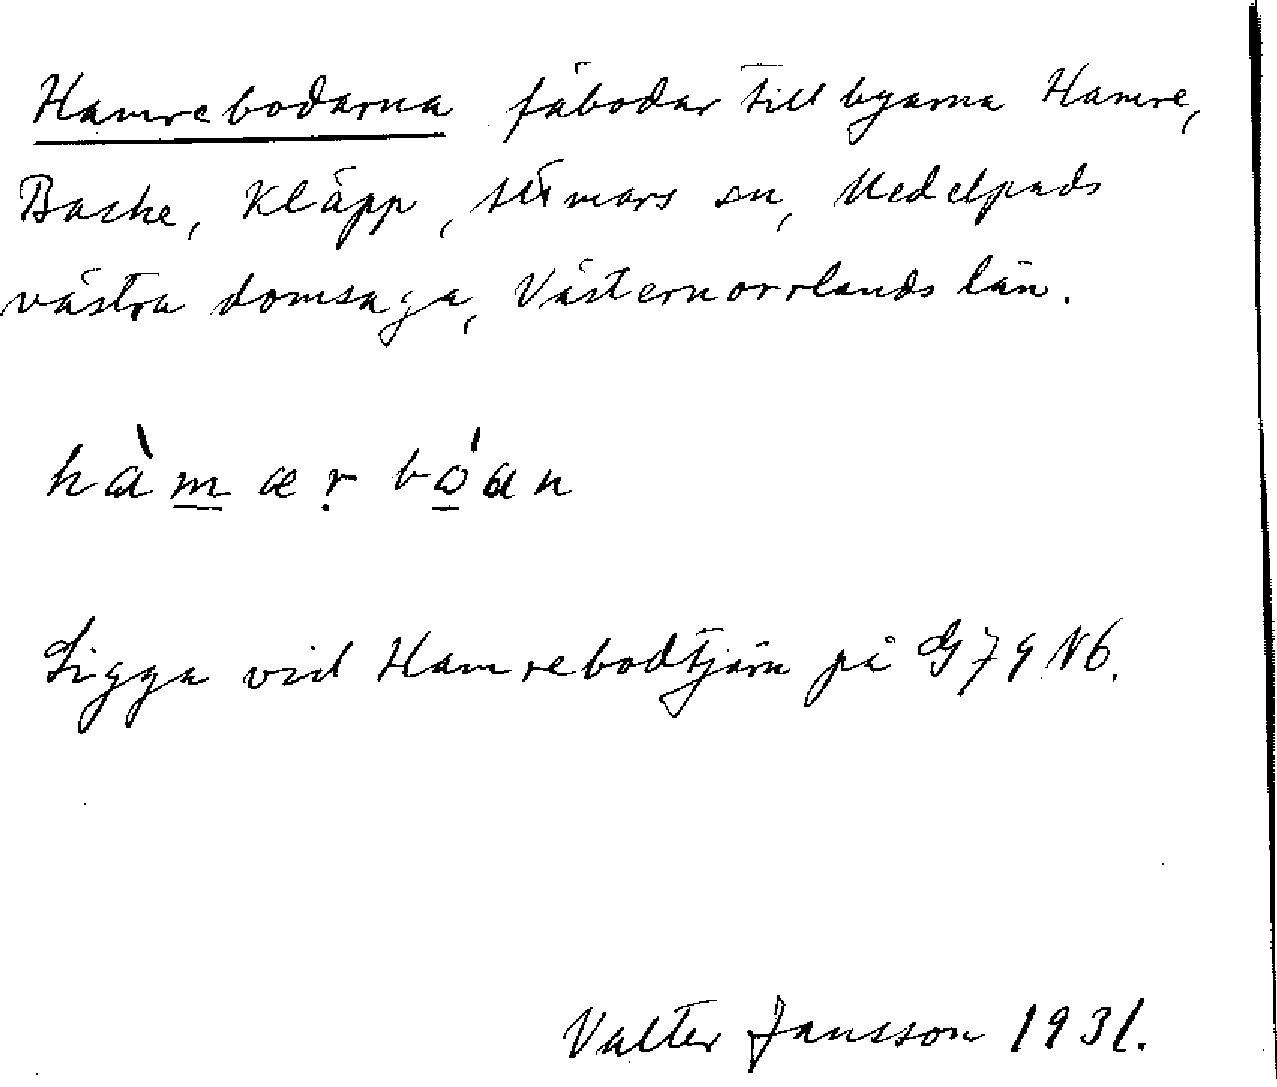 Hamrebodarna fäbodar till byarna Hamre,
Backe, Kläpp, Stömars sn, Medelpads
västra domsaga, Västernorrlands län.
hàmærbóan
Ligga vid Hamrebodtjärn på G79 N6.
Valter Jansson 1931.